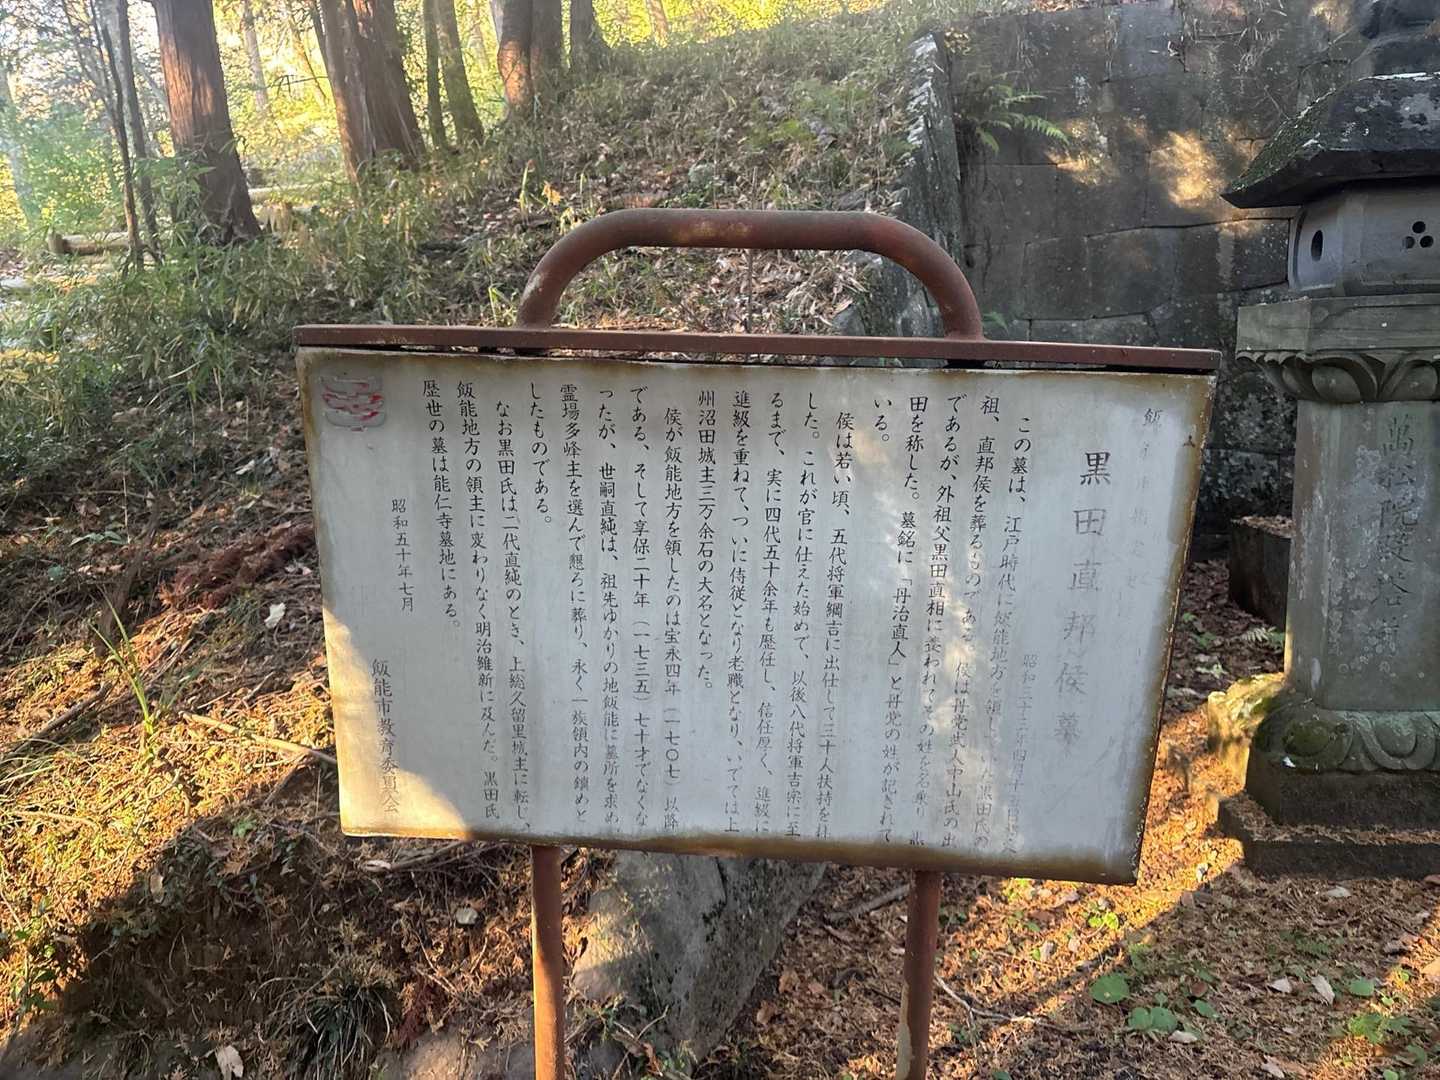 飯
黒田直邦侯墓
昭和三十三年四月十五日
この墓は、江戸時代に飯能地方を領していた黒田氏の
祖、直邦侯を葬るものである。侯は丹党武人中山氏の出
であるが、外祖父黒田直相に養われてその姓を名乗り黒
田を称した。墓銘に「丹治直人」と丹党の姓が記されて
いる。
侯は若い頃、五代将軍綱吉に出仕して三十人扶持を杜
した。これが官に仕えた始めで、以後八代将軍吉宗に至
るまで、実に四代五十余年も歴任し、信任厚く、進級に
進級を重ねて、ついに侍従となり老職となり、いてては上
州沼田城主三万余石の大名となった。
侯が飯能地方を領したのは宝永四年(一七〇七)以降
である、そして享保二十年(一七三五)七十才でなくな
ったが、世嗣直純は、祖先ゆかりの地飯能に墓所を求め、
霊場多峰主を選んで懇ろに葬り、永く一族領内の鎮めと
したものである。
なお黒田氏は二代直純のとき、上総久留里城主に転し、
飯能地方の領主に変わりなく明治維新に及んだ。黒田氏
歴世の墓は能仁寺墓地にある。
昭和五十年七月
飯能市教育委員会